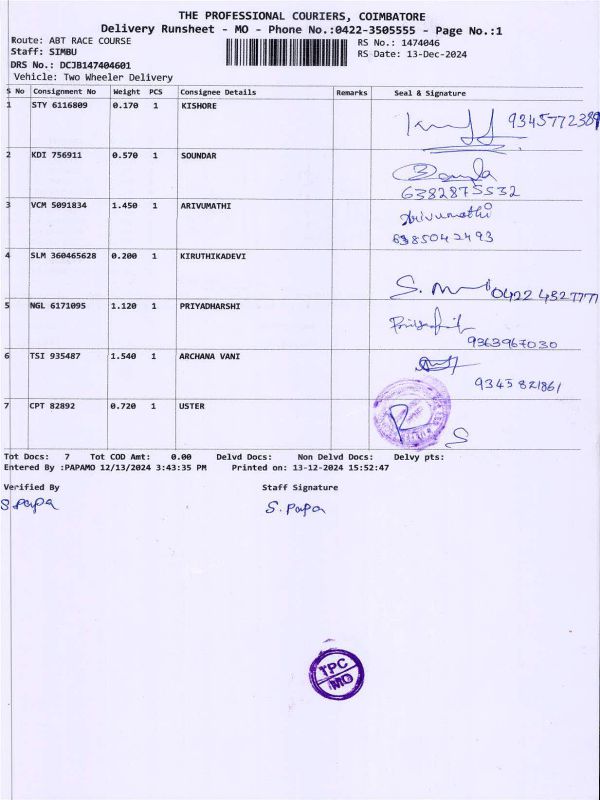 THE PROFESSIONAL COURIERS, COIMBATORE
Delivery Runsheet - MO - Phone No.:0422-3505555 - Page No.:1
Route: ABT RACE COURSE
RS No.: 1474046
Staff: SIMBU
RS Date: 13-Dec-2024
DRS No.: DCJB147404601
Vehicle: Two Wheeler Delivery
S No Consignment No Weight PCS Consignee Details Remarks Seal & Signature
1 STY 6116809 0.170 1 KISHORE
9345772389
2 KDI 756911 0.570 1 SOUNDAR
6382875532
3 VCM 5091834 1.450 1 ARIVUMATHI Arivumathi
6385042493
4 SLM 360465628 0.200 1 KIRUTHIKADEVI
0422 4327777
5 NGL 6171095 1.120 1 PRIYADHARSHI
9363967030
6 TSI 935487 1.540 1 ARCHANA VANI
9345821861
7 CPT 82892 0.720 1 USTER
Tot Docs: 7 Tot COD Amt: 0.00 Delvd Docs: Non Delvd Docs: Delvy pts:
Entered By :PAPAMO 12/13/2024 3:43:35 PM Printed on: 13-12-2024 15:52:47
Verified By Staff Signature
S. Papa S. Papa
TPC
MO